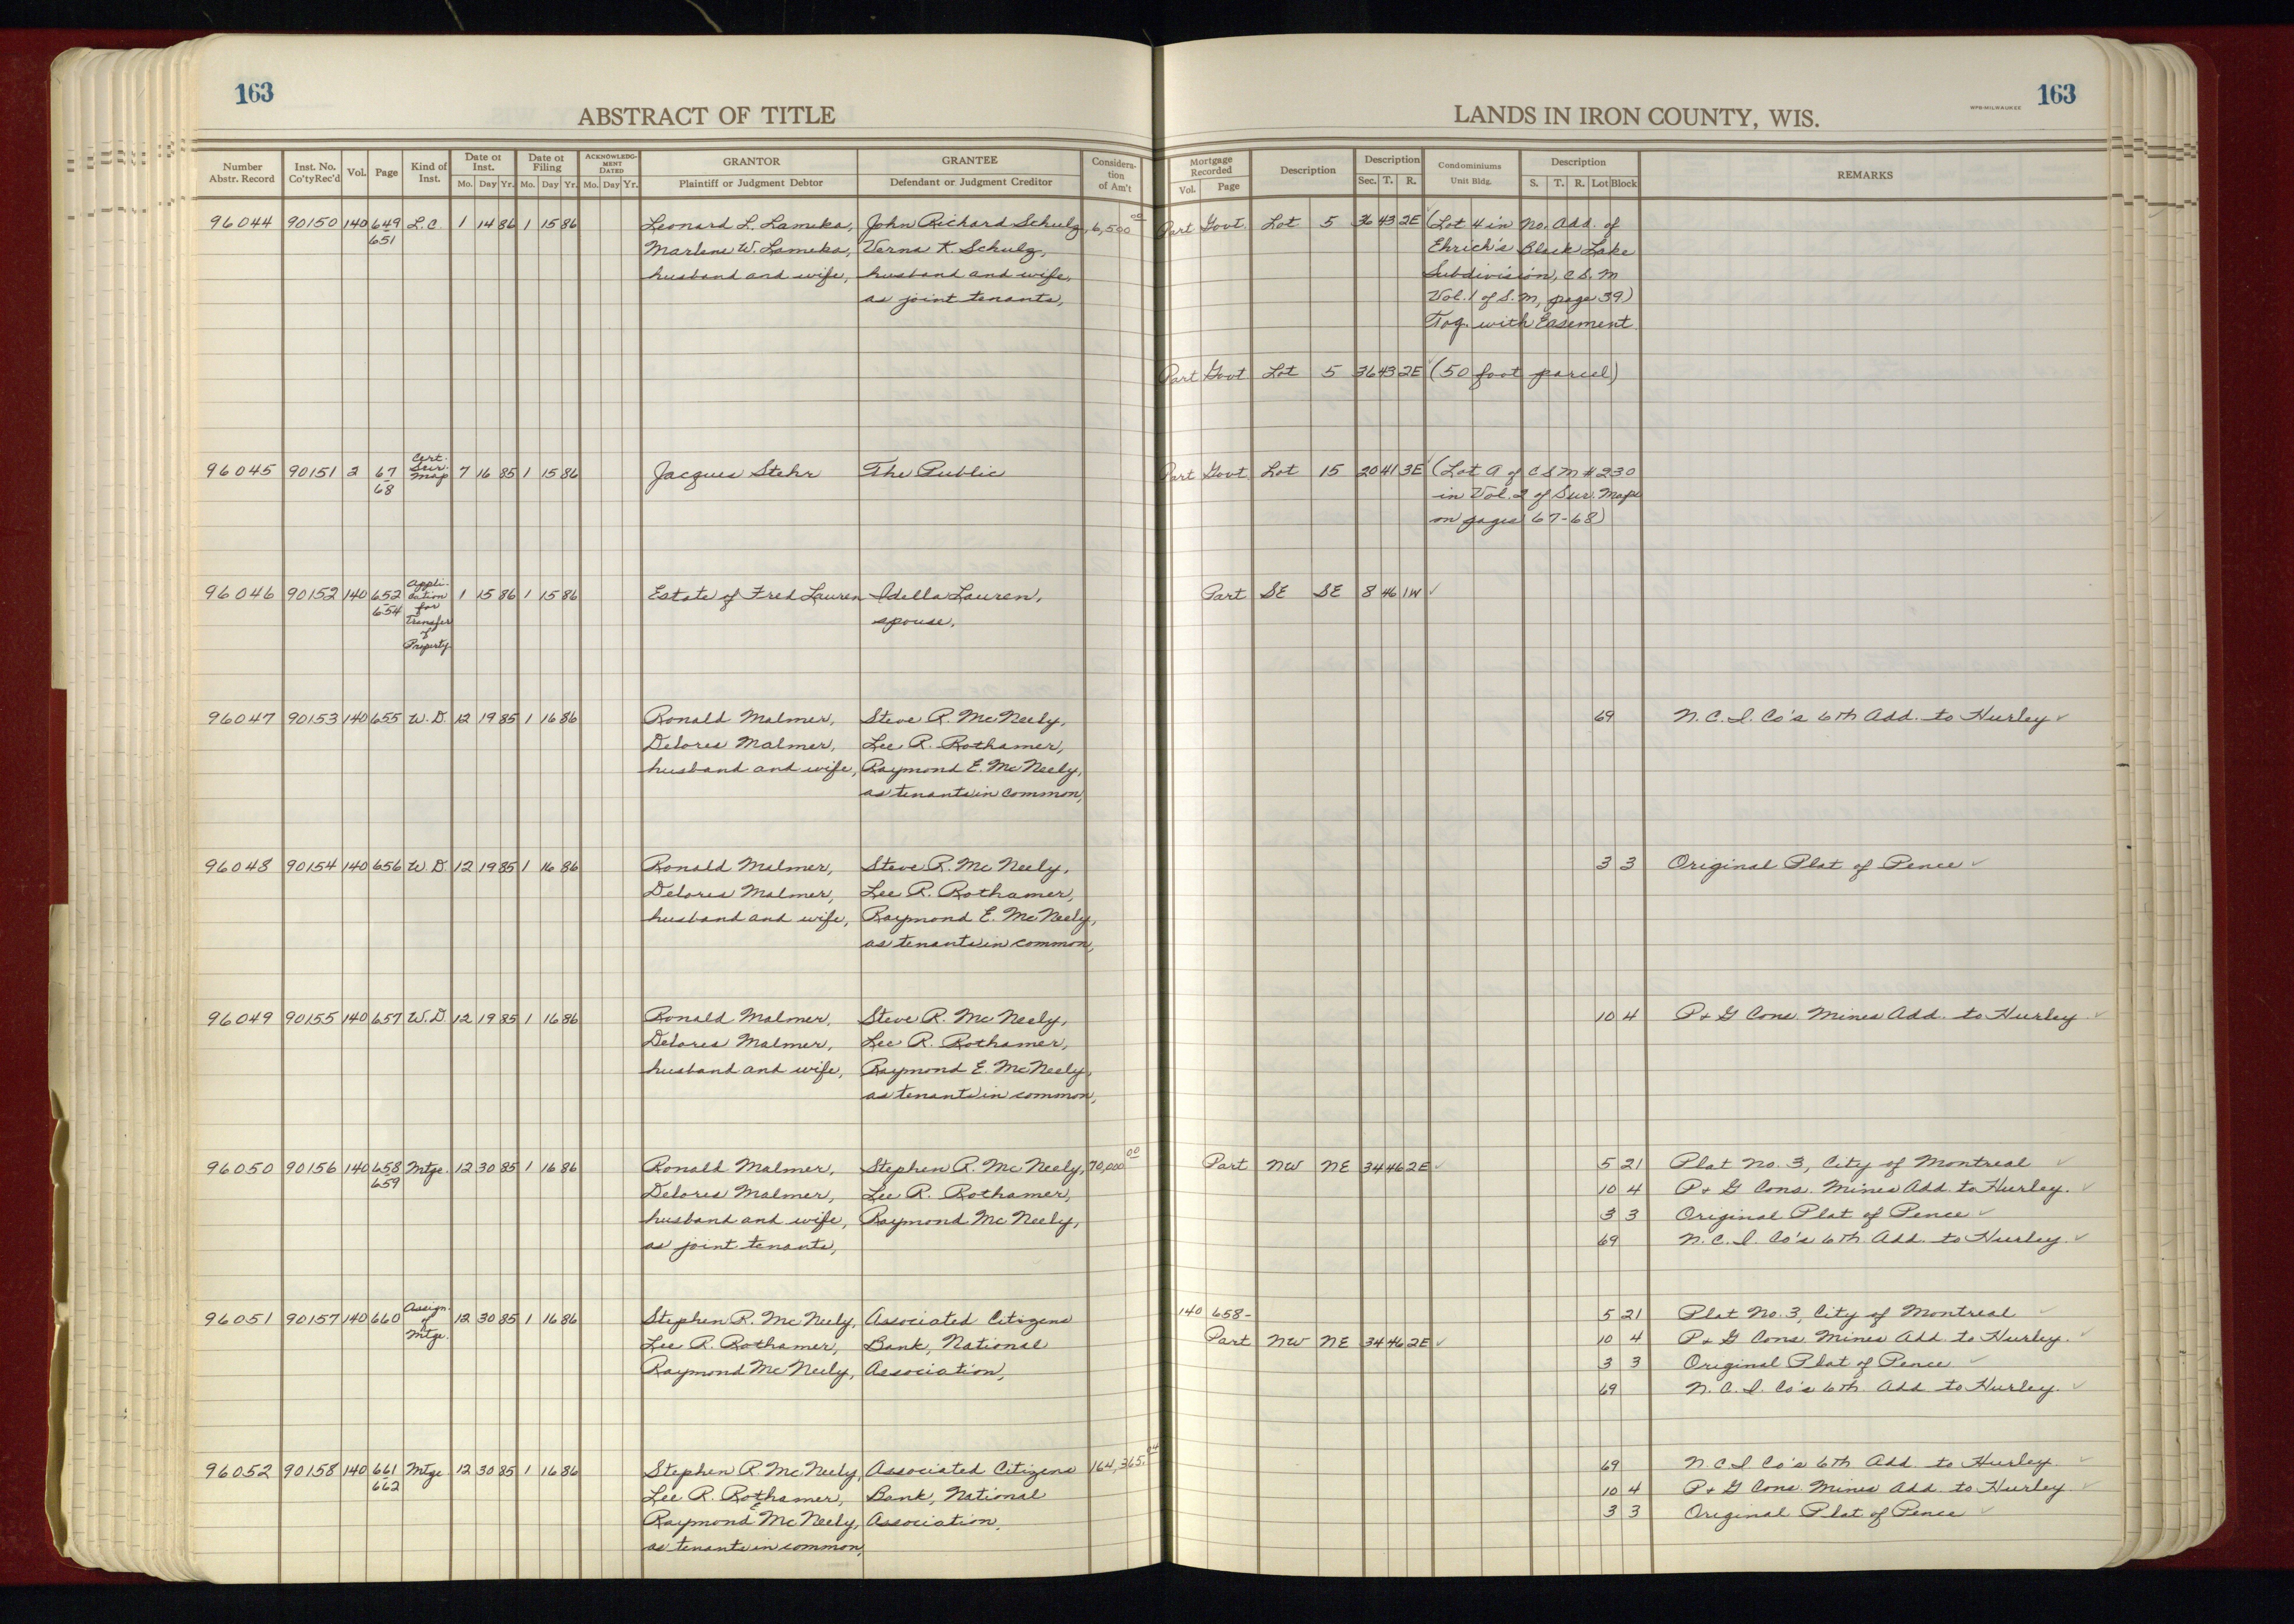 163
ABSTRACT OF TITLE
LANDS IN IRON COUNTY, WIS.
WPB-MILWAUKEE
163
Number Abstr. Record Inst. No. Co'ty Rec'd Vol. Page Kind of Inst. Date of Inst. Mo. Day Yr. Date of Filing Mo. Day Yr. ACKNOWLEDGMENT DATED Mo. Day Yr. GRANTOR Plaintiff or Judgment Debtor GRANTEE Defendant or Judgment Creditor Consideration of Am't
Mortgage Recorded Vol. Page Description Description Sec. T. R. Condominiums Unit Bldg. Description S. T. R. Lot Block REMARKS
96044 90150 140 649 L.C. 1 14 86 1 15 86 Leonard L. Lameka, John Richard Schulz, 6,500 00 Part Govt. Lot 5 36 43 2E (Lot 4 in No. Add. of
651 Marlene W. Lameka, Verna K. Schulz, Ehrich's Black Lake
husband and wife, husband and wife, Subdivision, C.S.M
as joint tenants, Vol. 1 of S.M, page 39)
Tog. with Easement
Part Govt Lot 5 36 43 2E (50 foot parcel)
96045 90151 2 67 68 Cert. Sur. Map 7 16 85 1 15 86 Jacques Stehr The Public Part Govt. Lot 15 20 41 3E (Lot A of CSM #230
in Vol. 2 of Sur. Maps
on pages 67-68)
96046 90152 140 652 654 Appli- cation for Transfer of Property 1 15 86 1 15 86 Estate of Fred Lauren Idella Lauren, Part SE SE 8 46 1W
spouse,
96047 90153 140 655 W.D. 12 19 85 1 16 86 Ronald Malmer, Steve R. McNeely, 69 N.C.I. Co's 6th Add. to Hurley
Delores Malmer, Lee R. Rothamer,
husband and wife, Raymond E. McNeely,
as tenants in common,
96048 90154 140 656 W.D. 12 19 85 1 16 86 Ronald Malmer, Steve R. McNeely, 3 3 Original Plat of Pence
Delores Malmer, Lee R. Rothamer,
husband and wife, Raymond E. McNeely,
as tenants in common,
96049 90155 140 657 W.D. 12 19 85 1 16 86 Ronald Malmer, Steve R. McNeely, 10 4 P & G Cons. Mines Add. to Hurley
Delores Malmer, Lee R. Rothamer,
husband and wife, Raymond E. McNeely,
as tenants in common,
96050 90156 140 658 659 Mtge. 12 30 85 1 16 86 Ronald Malmer, Stephen R. McNeely, 70,000 00 Part NW NE 34 46 2E 5 21 Plat No. 3, City of Montreal
Delores Malmer, Lee R. Rothamer, 10 4 P & G Cons. Mines Add. to Hurley.
husband and wife, Raymond McNeely, 3 3 Original Plat of Pence
as joint tenants, 69 N.C.I. Co's 6th Add. to Hurley.
96051 90157 140 660 Assign. of Mtge. 12 30 85 1 16 86 Stephen R. McNeely, Associated Citizens 140 658- 5 21 Plat No. 3, City of Montreal
Lee R. Rothamer, Bank, National Part NW NE 34 46 2E 10 4 P & G Cons Mines Add. to Hurley.
Raymond McNeely, Association, 3 3 Original Plat of Pence
69 N.C.I. Co's 6th Add to Hurley.
96052 90158 140 661 662 Mtge 12 30 85 1 16 86 Stephen R. McNeely, Associated Citizens 164,365. 04 69 N C I Co's 6th Add. to Hurley.
Lee R. Rothamer, Bank, National 10 4 P & G Cons. Mines Add. to Hurley
Raymond E McNeely, Association, 3 3 Original Plat of Pence
as tenants in common,